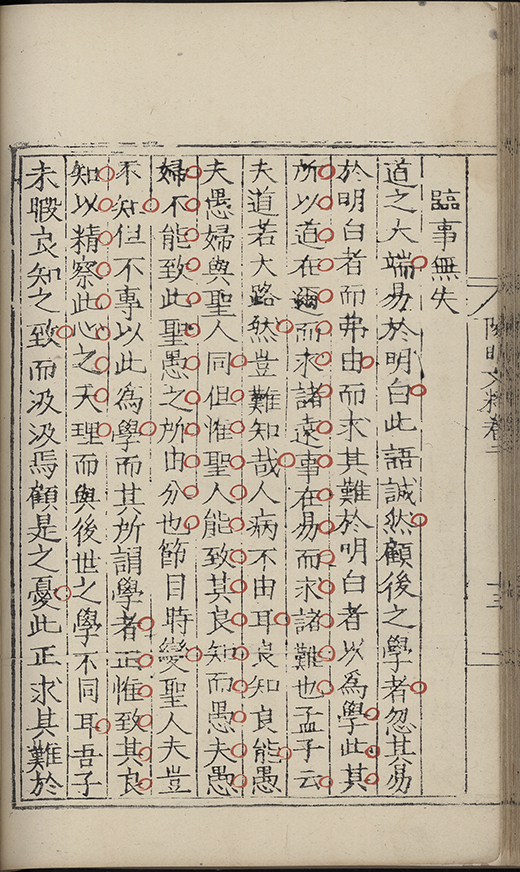 陽明文粹卷
十三
臨事無失
道之大端易於明白此語誠然顧後之學者忽其易
於明白者而弗由而求其難於明白者以為學此其
所以道在邇而求諸遠事在易而求諸難也孟子云
夫道若大路然豈難知哉人病不由耳良知良能愚
夫愚婦與聖人同但惟聖人能致其良知而愚夫愚
婦不能致此聖愚之所由分也節目時變聖人夫豈
不知但不專以此為學而其所謂學者正惟致其良
知以精察此心之天理而與後世之學不同耳吾子
未暇良知之致而汲汲焉顧是之憂此正求其難於